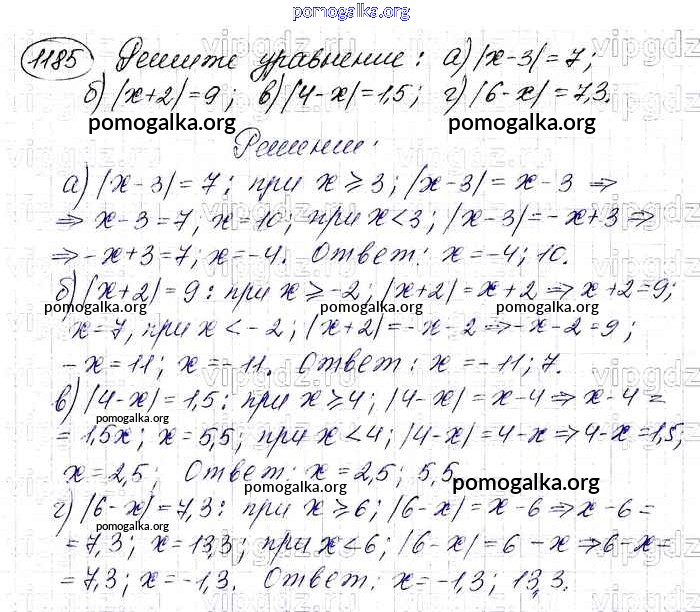 pomogalka.org
1185 Решите уравнение: а) |x-3|=7;
б) |x+2|=9; в) |4-x|=1,5; г) |6-x|=7,3.
pomogalka.org pomogalka.org
Решение:
а) |x-3|=7: при x⩾3; |x-3|=x-3 ⇒
⇒ x-3=7, x=10; при x<3; |x-3|=-x+3 ⇒
⇒ -x+3=7; x=-4. Ответ: x=-4; 10.
б) |x+2|=9: при x⩾-2, |x+2|=x+2 ⇒ x+2=9;
pomogalka.org pomogalka.org
x=7, при x<-2; |x+2|=-x-2 ⇒ -x-2=9;
-x=11; x=-11. Ответ: x=-11; 7.
в) |4-x|=1,5: при x⩾4; |4-x|=x-4 ⇒ x-4=
pomogalka.org pomogalka.org
=1,5x; x=5,5; при x<4; |4-x|=4-x ⇒ 4-x=1,5;
x=2,5; Ответ: x=2,5; 5,5
pomogalka.org pomogalka.org
г) |6-x|=7,3: при x⩾6; |6-x|=x-6 ⇒ x-6=
pomogalka.org
=7,3; x=13,3; при x<6; |6-x|=6-x ⇒ 6-x=
=7,3; x=-1,3. Ответ: x=-1,3; 13,3.
pomogalka.org pomogalka.org